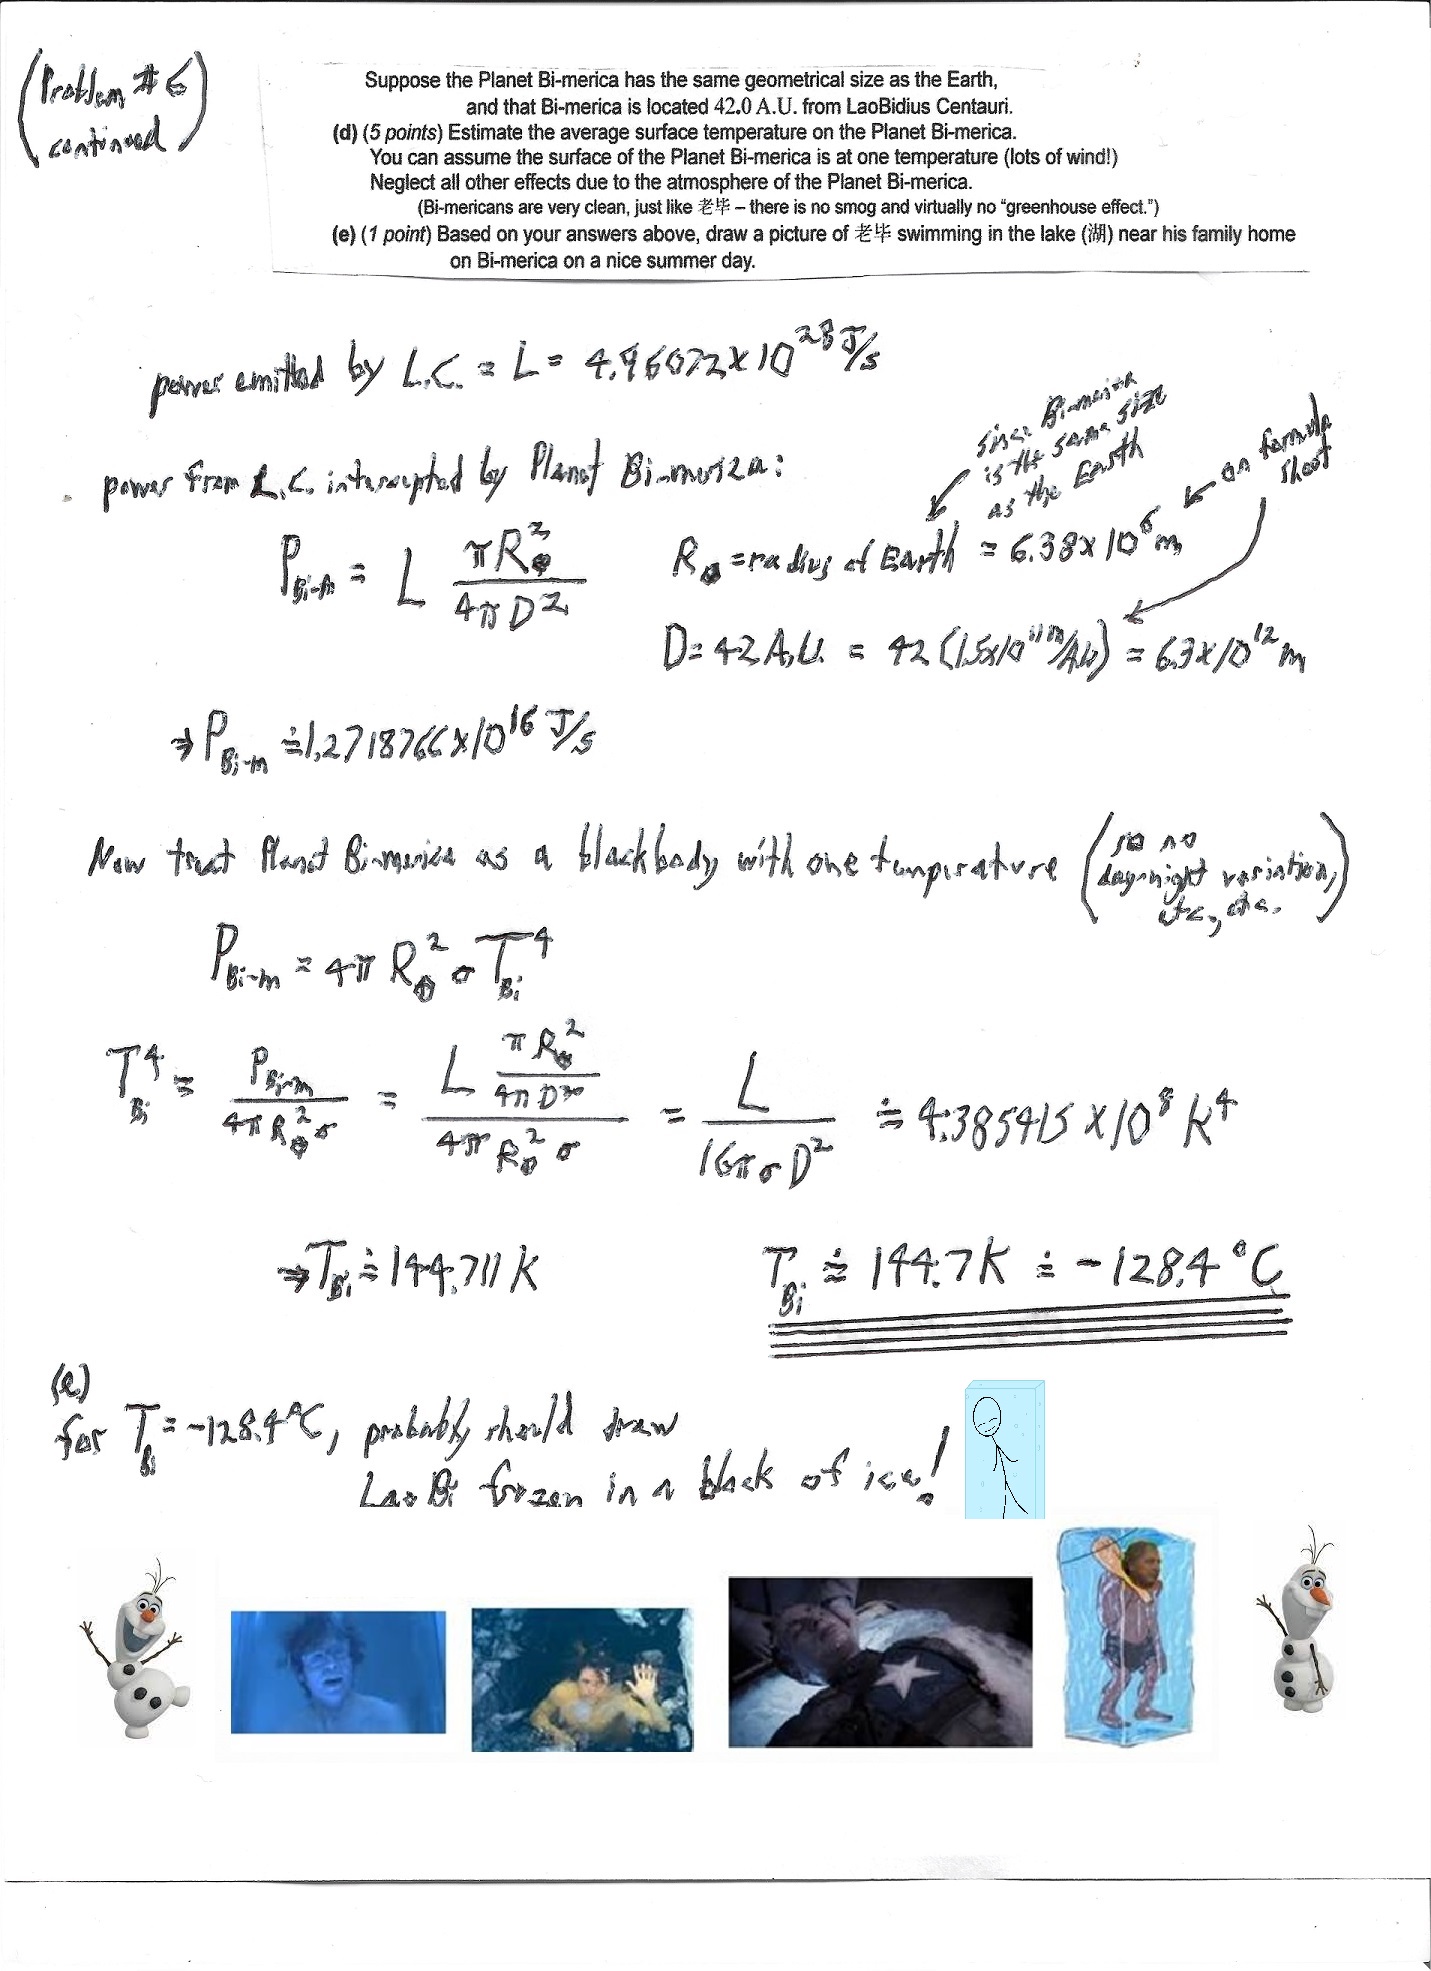 (Problem #6
continued)
Suppose the Planet Bi-merica has the same geometrical size as the Earth,
and that Bi-merica is located 42.0 A.U. from LaoBidius Centauri.
(d) (5 points) Estimate the average surface temperature on the Planet Bi-merica.
You can assume the surface of the Planet Bi-merica is at one temperature (lots of wind!)
Neglect all other effects due to the atmosphere of the Planet Bi-merica.
(Bi-mericans are very clean, just like 老毕 – there is no smog and virtually no “greenhouse effect.”)
(e) (1 point) Based on your answers above, draw a picture of 老毕 swimming in the lake (湖) near his family home
on Bi-merica on a nice summer day.
power emitted by L.C. = L = 4.96072 x 10^28 J/s
power from L.C. intercepted by Planet Bi-merica:
since Bi-merica
is the same size
as the Earth
on formula
sheet
P_Bi-m = L πR_⊕^2 / 4πD^2
R_⊕ = radius of Earth = 6.38 x 10^6 m
D = 42 A.U. = 42 (1.5x10^11 m/A.U.) = 6.3 x 10^12 m
⇒ P_Bi-m ≐ 1.2718766 x 10^16 J/s
Now treat Planet Bi-merica as a blackbody with one temperature (so no
day-night variation,
etc., etc.)
P_Bi-m = 4π R_⊕^2 σ T_Bi^4
T_Bi^4 = P_Bi-m / 4πR_⊕^2 σ = L (πR_⊕^2 / 4πD^2) / 4πR_⊕^2 σ = L / 16πσD^2 ≐ 4.385415 x 10^8 K^4
⇒ T_Bi ≐ 144.711 K
T_Bi ≐ 144.7 K ≐ -128.4 °C
(e)
for T_Bi = -128.4 °C, probably should draw
Lao Bi frozen in a block of ice!